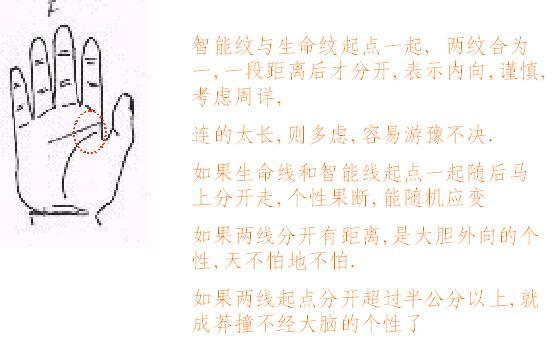 智能纹与生命纹起点一起, 两纹合为
一,一段距离后才分开,表示内向,谨慎,
考虑周详,
连的太长,则多虑,容易游豫不决.
如果生命线和智能线起点一起随后马
上分开走,个性果断,能随机应变
如果两线分开有距离,是大胆外向的个
性,天不怕地不怕.
如果两线起点分开超过半公分以上,就
成莽撞不经大脑的个性了